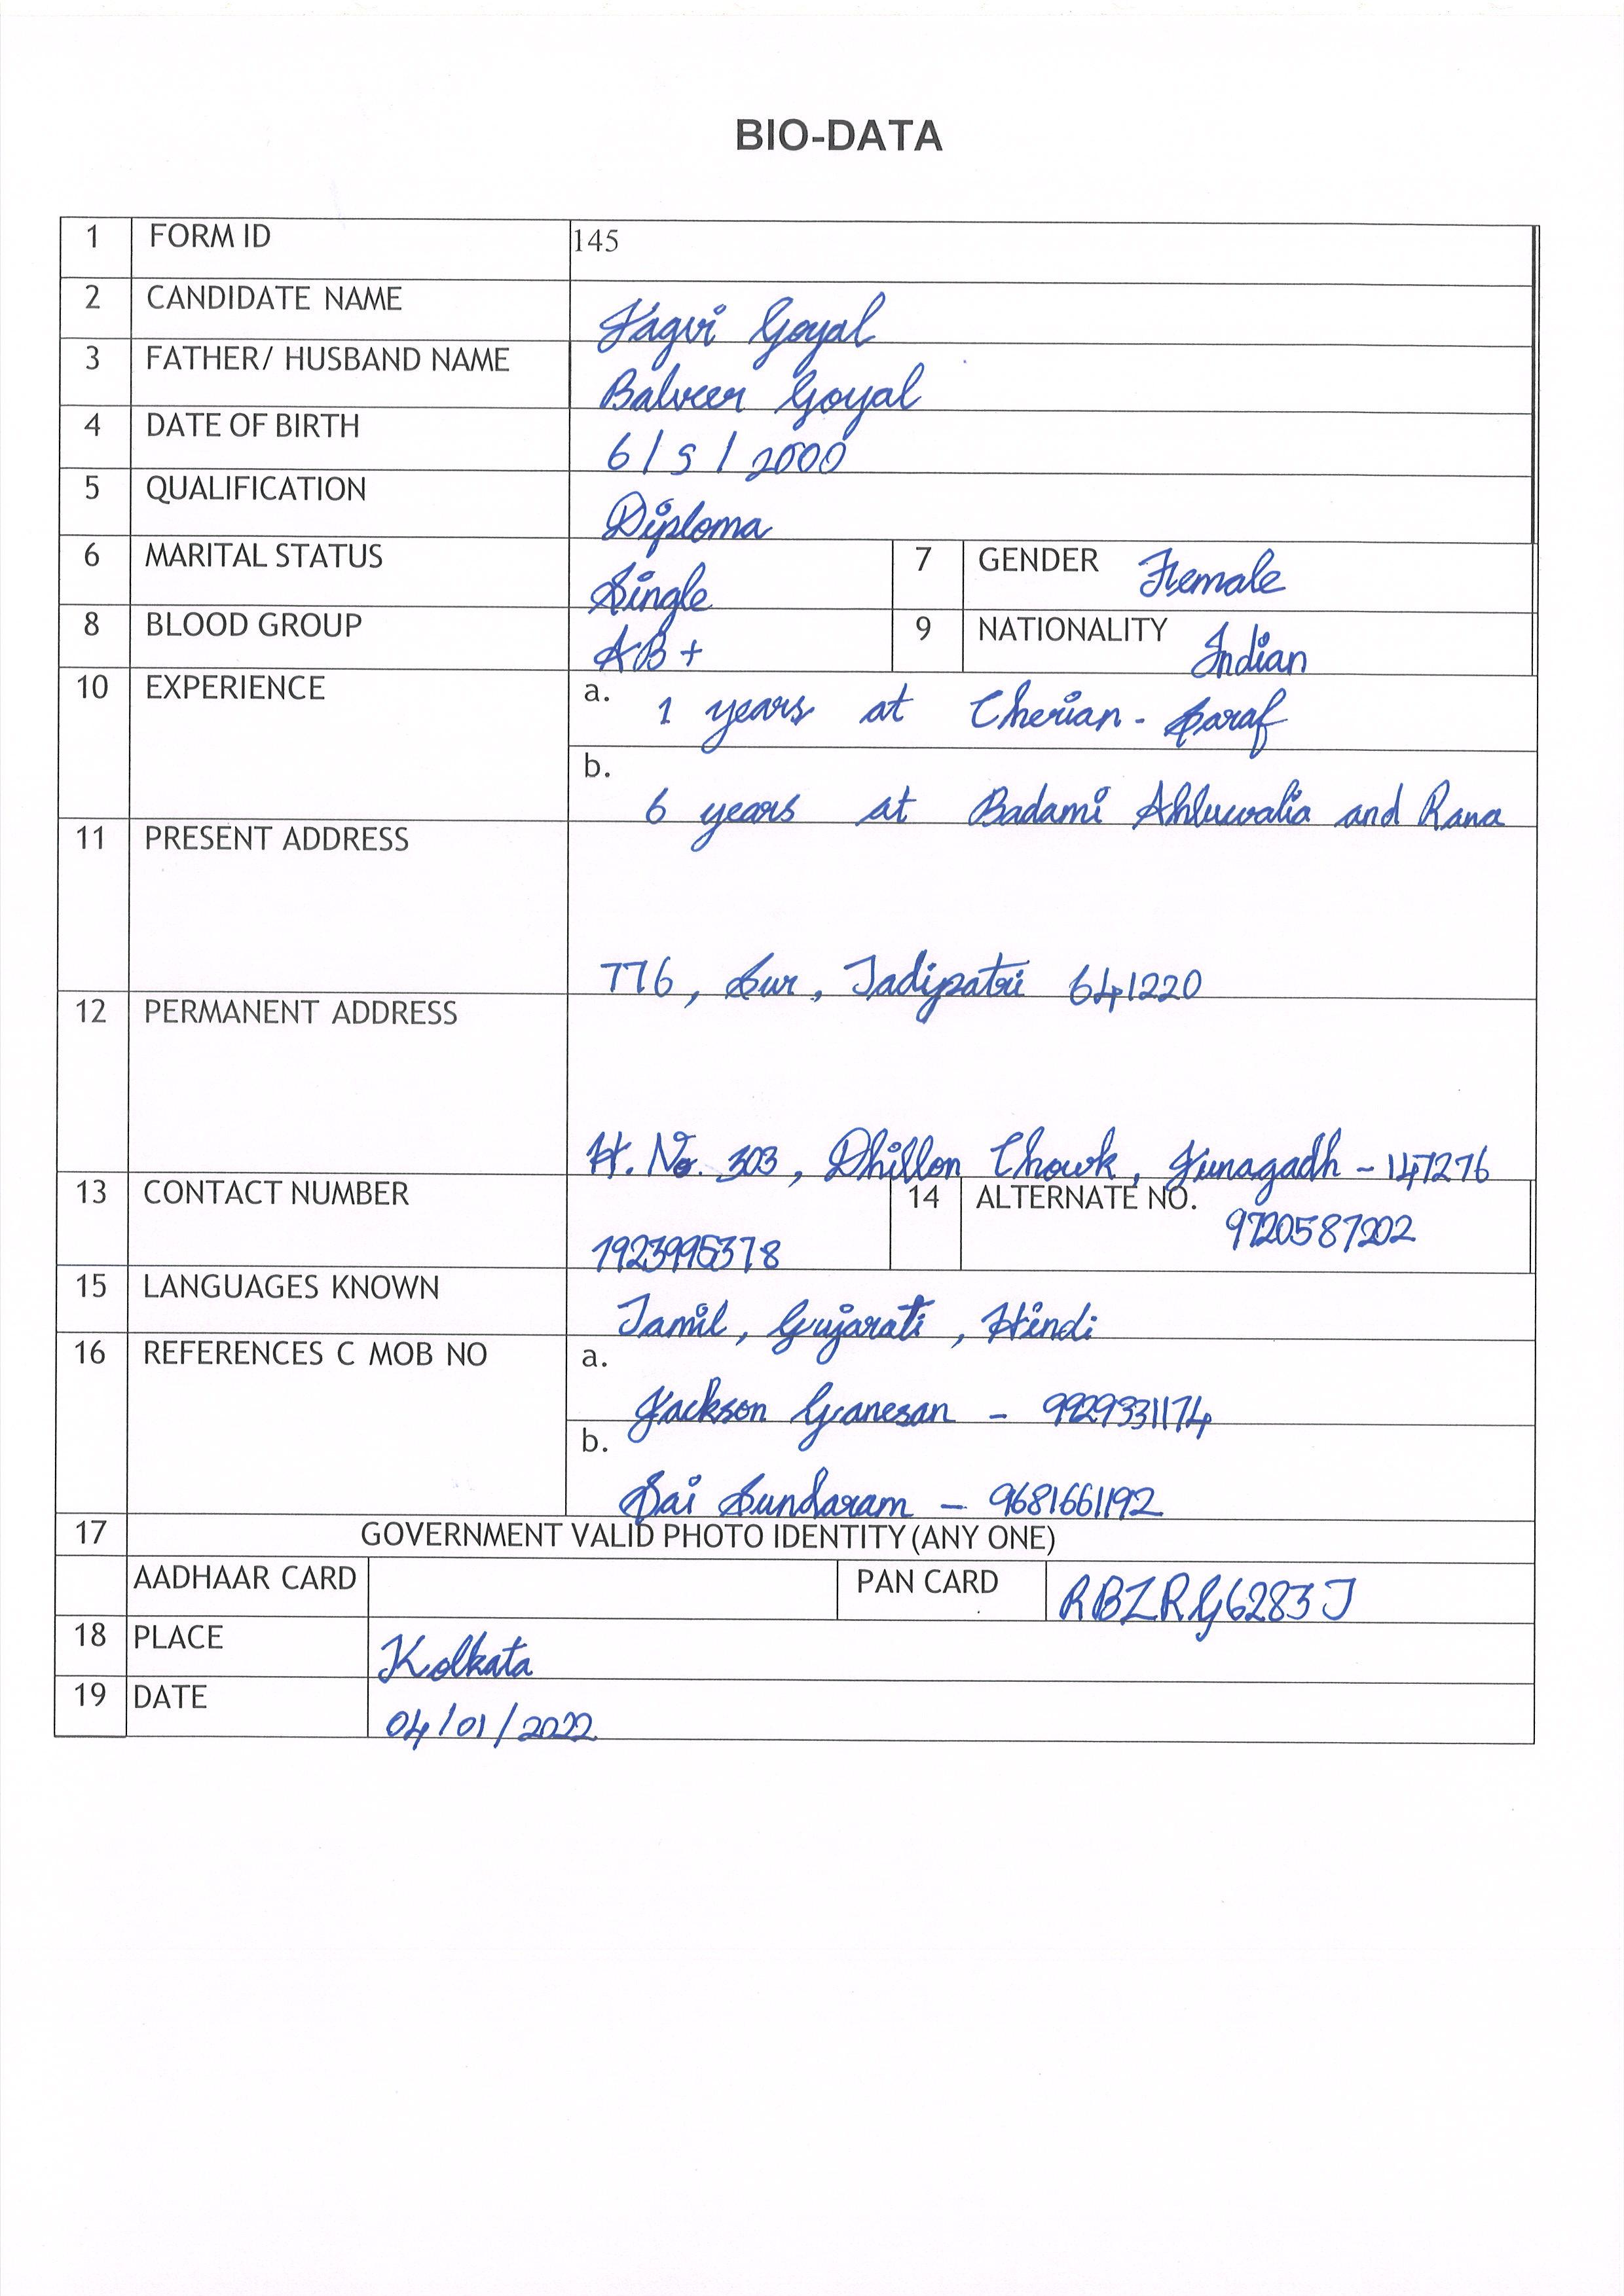 BIO-DATA
1 FORM ID 145
2 CANDIDATE NAME Yagvi Goyal
3 FATHER/ HUSBAND NAME Balveer Goyal
4 DATE OF BIRTH 6/5/2000
5 QUALIFICATION Diploma
6 MARITAL STATUS Single 7 GENDER Female
8 BLOOD GROUP AB+ 9 NATIONALITY Indian
10 EXPERIENCE a. 1 years at Cherian-Saraf
b. 6 years at Badami Ahluwalia and Rana
11 PRESENT ADDRESS
776, Sur, Tadipatri 641220
12 PERMANENT ADDRESS
H. No. 303, Dhillon Chowk, Junagadh - 147276
13 CONTACT NUMBER 1923995378 14 ALTERNATE NO. 9720587202
15 LANGUAGES KNOWN Tamil, Gujarati, Hindi
16 REFERENCES C MOB NO a.
Jackson Ganesan - 9929331174
b.
Sai Sundaram - 9681661192
17 GOVERNMENT VALID PHOTO IDENTITY (ANY ONE)
AADHAAR CARD PAN CARD RBZRG6283J
18 PLACE Kolkata
19 DATE 04/01/2022